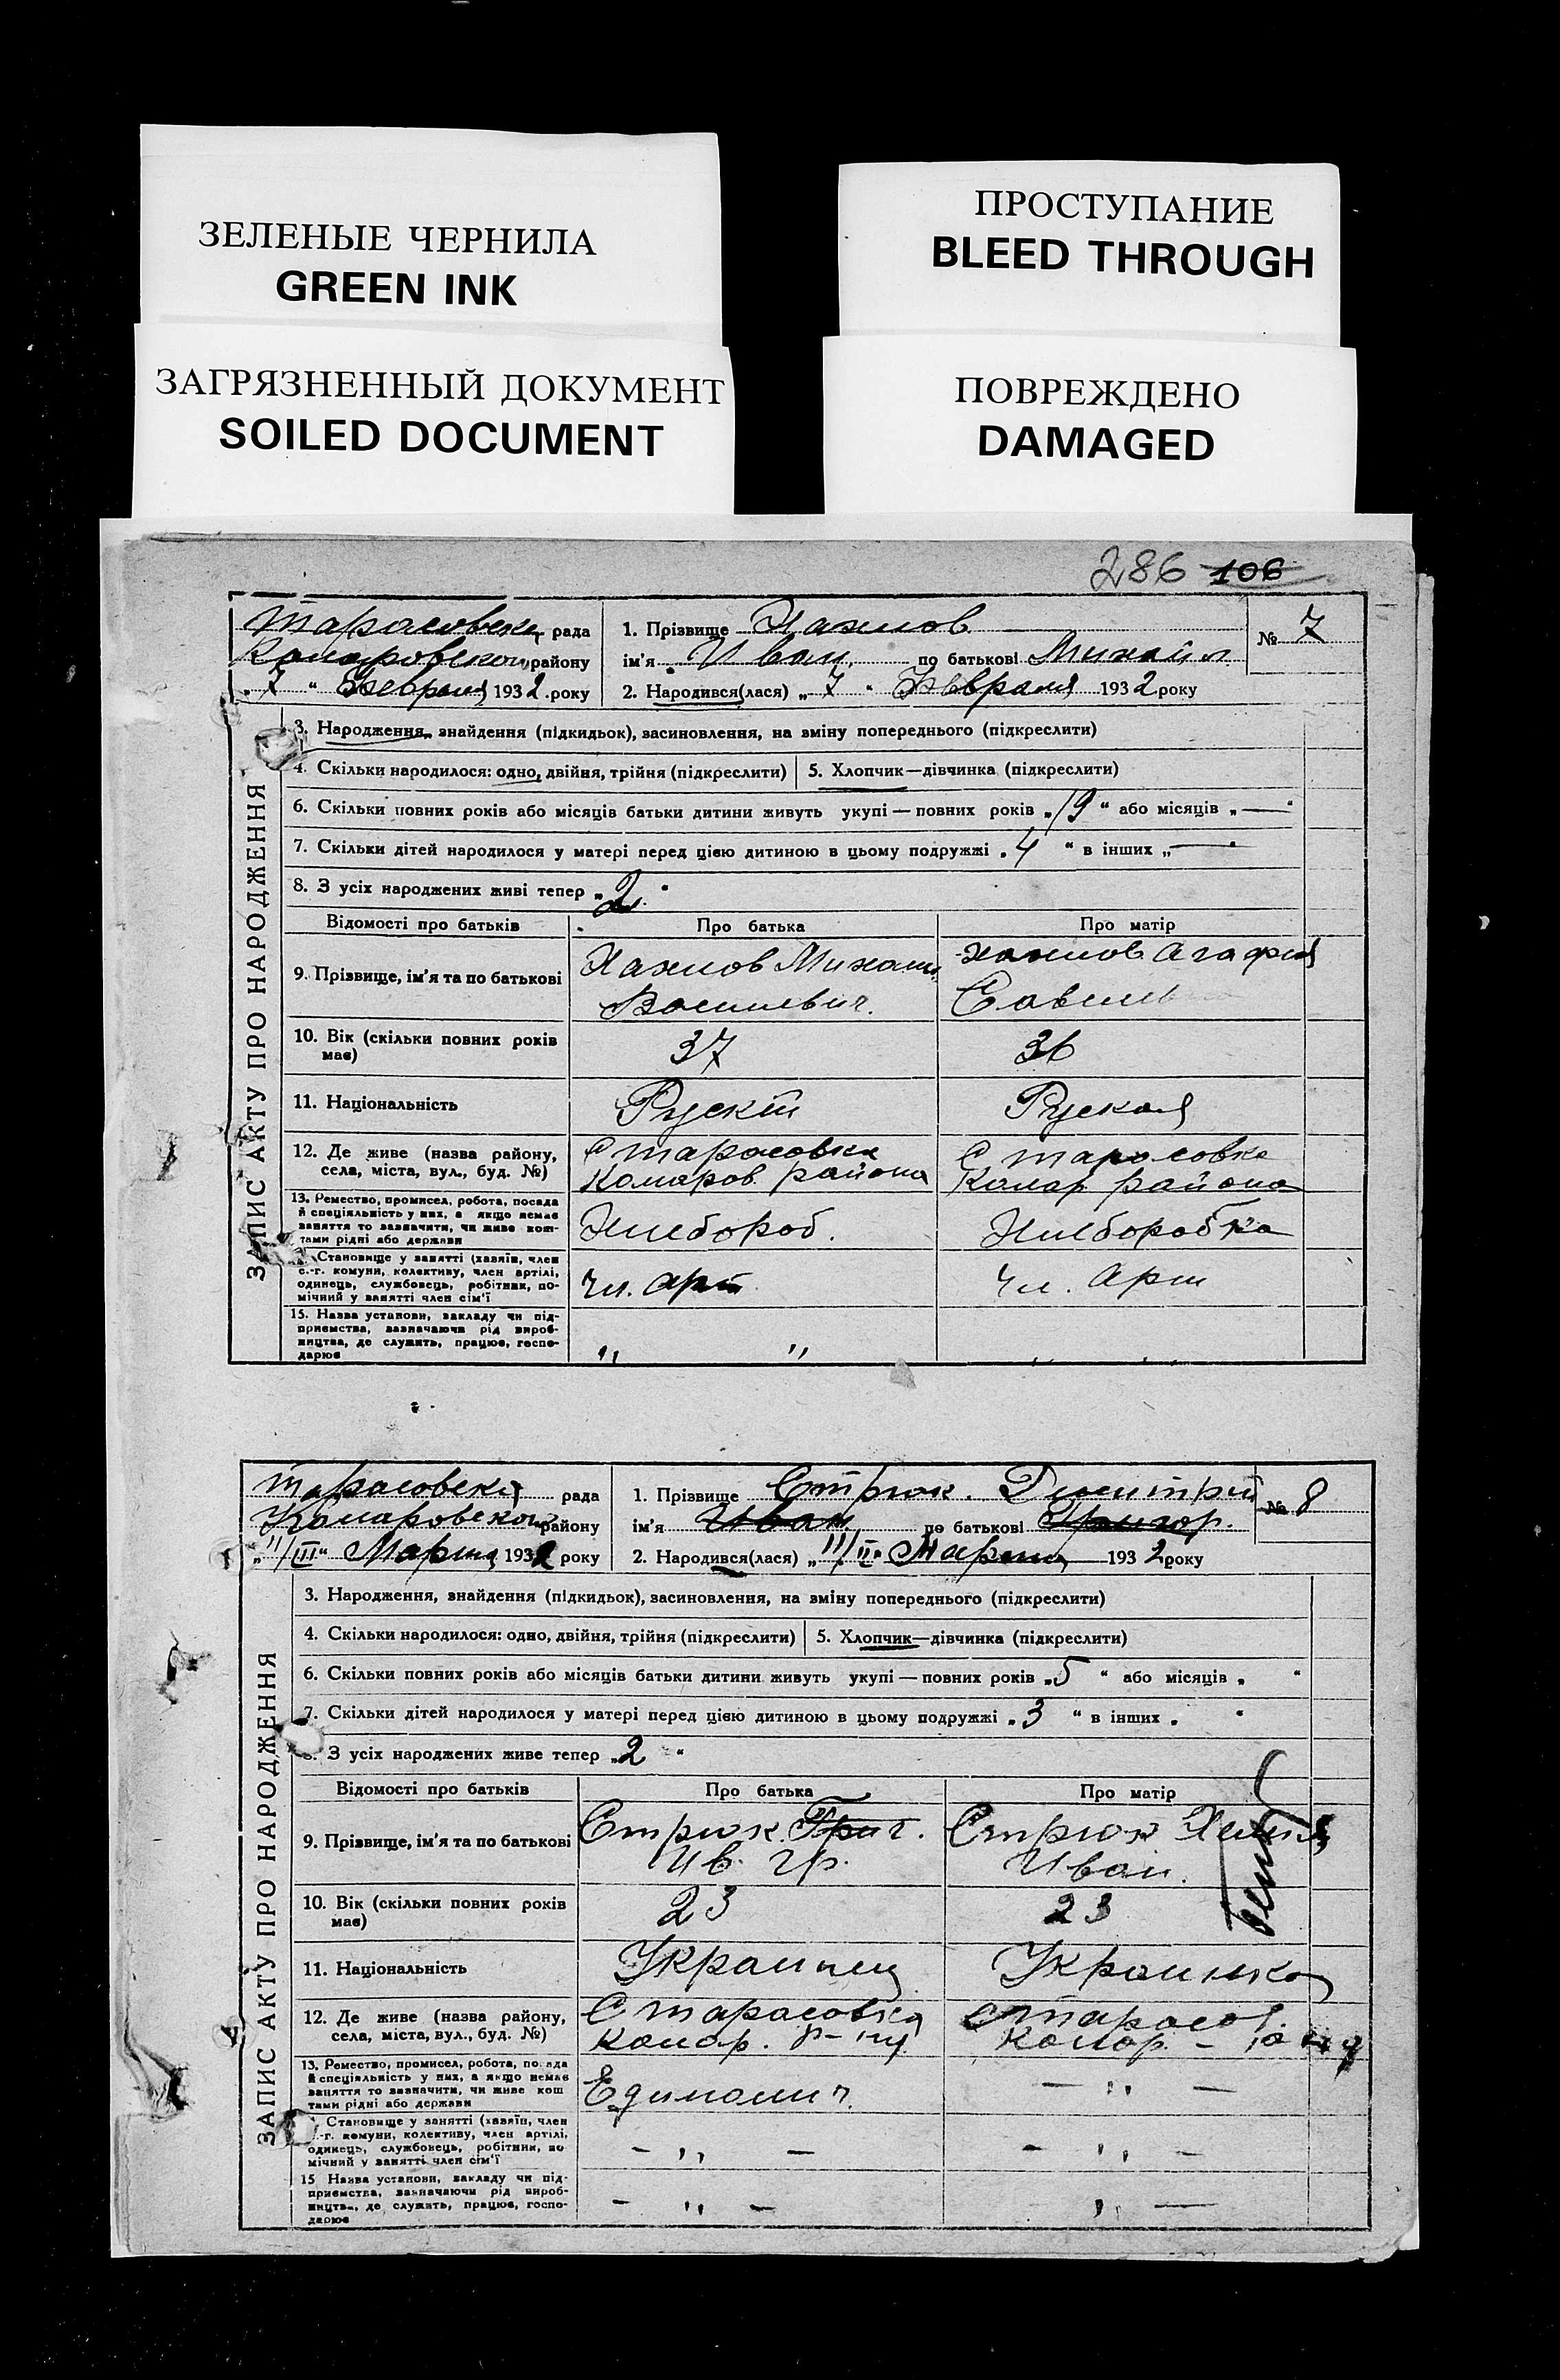 ЗЕЛЕНЫЕ ЧЕРНИЛА
GREEN INK
ПРОСТУПАНИЕ
BLEED THROUGH
ЗАГРЯЗНЕННЫЙ ДОКУМЕНТ
SOILED DOCUMENT
ПОВРЕЖДЕНО
DAMAGED
286 106
рада
1. Прізвище
№ 7
району
ім'я Иван по батькові Михайл
„7" Февраля 1932 року
2. Народився(лася) „7" Февраля 1932 року
ЗАПИС АКТУ ПРО НАРОДЖЕННЯ
3. Народження, знайдення (підкидьок), засиновлення, на зміну попереднього (підкреслити)
4. Скільки народилося: одно, двійня, трійня (підкреслити)
5. Хлопчик—дівчинка (підкреслити)
6. Скільки повних років або місяців батьки дитини живуть укупі — повних років „19" або місяців „—"
7. Скільки дітей народилося у матері перед цією дитиною в цьому подружжі „4" в інших „—"
8. З усіх народжених живі тепер „2"
Відомості про батьків
Про батька
Про матір
9. Прізвище, ім'я та по батькові
Агафия
10. Вік (скільки повних років має)
37
36
11. Національність
Руский
Руская
12. Де живе (назва району, села, міста, вул., буд. №)
С Тарасовка
Комаров района
С Тарасовка
Комар района
13. Ремество, промисел, робота, посада
й спеціяльність у них, а якщо немає
заняття то зазначити, чи живе кош-
тами рідні або держави
Хлебороб.
Хлеборобка
Становище у занятті (хазяїн, член
с.-г. комуни, колективу, член артілі,
одинець, службовець, робітник, по-
мічний у занятті член сім'ї
Чл. арт
Чл. Арт
15. Назва установи, закладу чи під-
приємства, зазначаючи рід вироб-
ництва, де служить, працює, госпо-
дарює
" "
рада
1. Прізвище Стрюк. Дмитрий
№ 8
району
ім'я Иван по батькові Григор.
„11/III" Марта 1932 року
2. Народився(лася) „11/III" Марта 1932 року
ЗАПИС АКТУ ПРО НАРОДЖЕННЯ
3. Народження, знайдення (підкидьок), засиновлення, на зміну попереднього (підкреслити)
4. Скільки народилося: одно, двійня, трійня (підкреслити)
5. Хлопчик—дівчинка (підкреслити)
6. Скільки повних років або місяців батьки дитини живуть укупі — повних років „5" або місяців „ "
7. Скільки дітей народилося у матері перед цією дитиною в цьому подружжі „3" в інших „ "
З усіх народжених живе тепер „2"
Відомості про батьків
Про батька
Про матір
9. Прізвище, ім'я та по батькові
Стрюк. Григ.
Ив. Гр.
Стрюк
Иван.
10. Вік (скільки повних років має)
23
23
11. Національність
Украинец
Украинка
12. Де живе (назва району, села, міста, вул., буд. №)
С Тарасовка
Комар. р-ну
С Тарасов.
Комар.
13. Ремество, промисел, робота, посада
й спеціяльність у них, а якщо немає
заняття то зазначити, чи живе кош
тами рідні або держави
Единолич.
— " —
Становище у занятті (хазяїн, член
с.-г. комуни, колективу, член артілі,
одинець, службовець, робітник, по
мічний у занятті член сім'ї
— " —
— " —
15 Назва установи, закладу чи під-
приємства, зазначаючи рід вироб-
ництва, де служить, працює, госпо-
дарює
— " —
" —